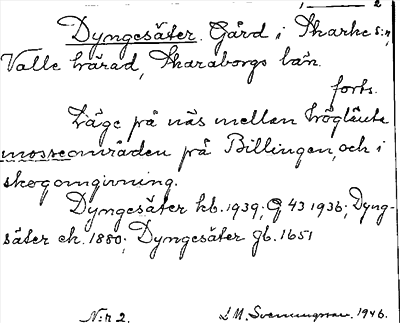 1 2
Dyngesäter. Gård i Skarke s:n,
Valle härad, Skaraborgs län.
forts.
Läge på näs mellan högländta
mosseområden på Billingen, och i
skogomgivning.
Dyngesäter kb. 1939; G 43 1936; Dyng-
säter ek. 1880; Dyngesäter gb. 1651
N:r 2. I M. Svenungsson. 1946.